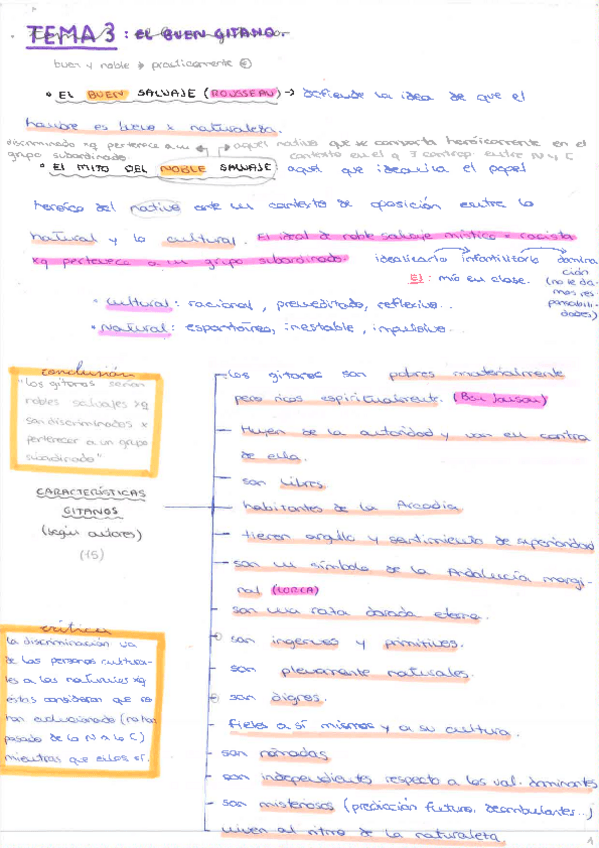 TEMA 3 : EL BUEN GITANO.
buen y noble → prácticamente =
• EL BUEN SALVAJE (ROUSSEAU) → defiende la idea de que el
hombre es bueno x naturaleza.
discriminado xq pertenece a un grupo subordinado.
aquel nativo que se comporta heróicamente en el contexto en el q ∃ contrap. entre N y C
• EL MITO DEL NOBLE SALVAJE: aquel que idealiza el papel
heroico del nativo ante un contexto de oposición entre lo
natural y lo cultural. El ideal de noble salvaje místico = racista
xq pertenece a un grupo subordinado. idealizarlo infantilizarlo dominación
(no le damos responsabilidades)
EJ: mío en clase.
• Cultural: racional, premeditado, reflexivo...
• Natural: espontáneo, inestable, impulsivo...
conclusión
"los gitanos serían
nobles salvajes xq
son discriminados x
pertenecer a un grupo
subordinado"
CARACTERÍSTICAS
GITANOS
(según autores)
(15)
crítica
La discriminación va
de las personas cultura-
les a las naturales xq
éstas consideran que no
han evolucionado (no han
pasado de la N a la C)
mientras que ellos sí.
los gitanos son pobres materialmente
pero ricos espiritualmente. (Ben Jonson)
- Huyen de la autoridad y van en contra
de ella.
- son libres
- habitantes de la Arcadia
- tienen orgullo y sentimiento de superioridad
- son un símbolo de la Andalucía margi-
nal (LORCA)
- son una raza dorada eterna.
- son ingenuos y primitivos.
- son plenamente naturales.
- son dignos.
- Fieles a sí mismos y a su cultura.
- son nómadas
- son independientes respecto a los val. dominantes
- son misteriosos (predicación futuro, deambulantes...)
viven al ritmo de la naturaleza.